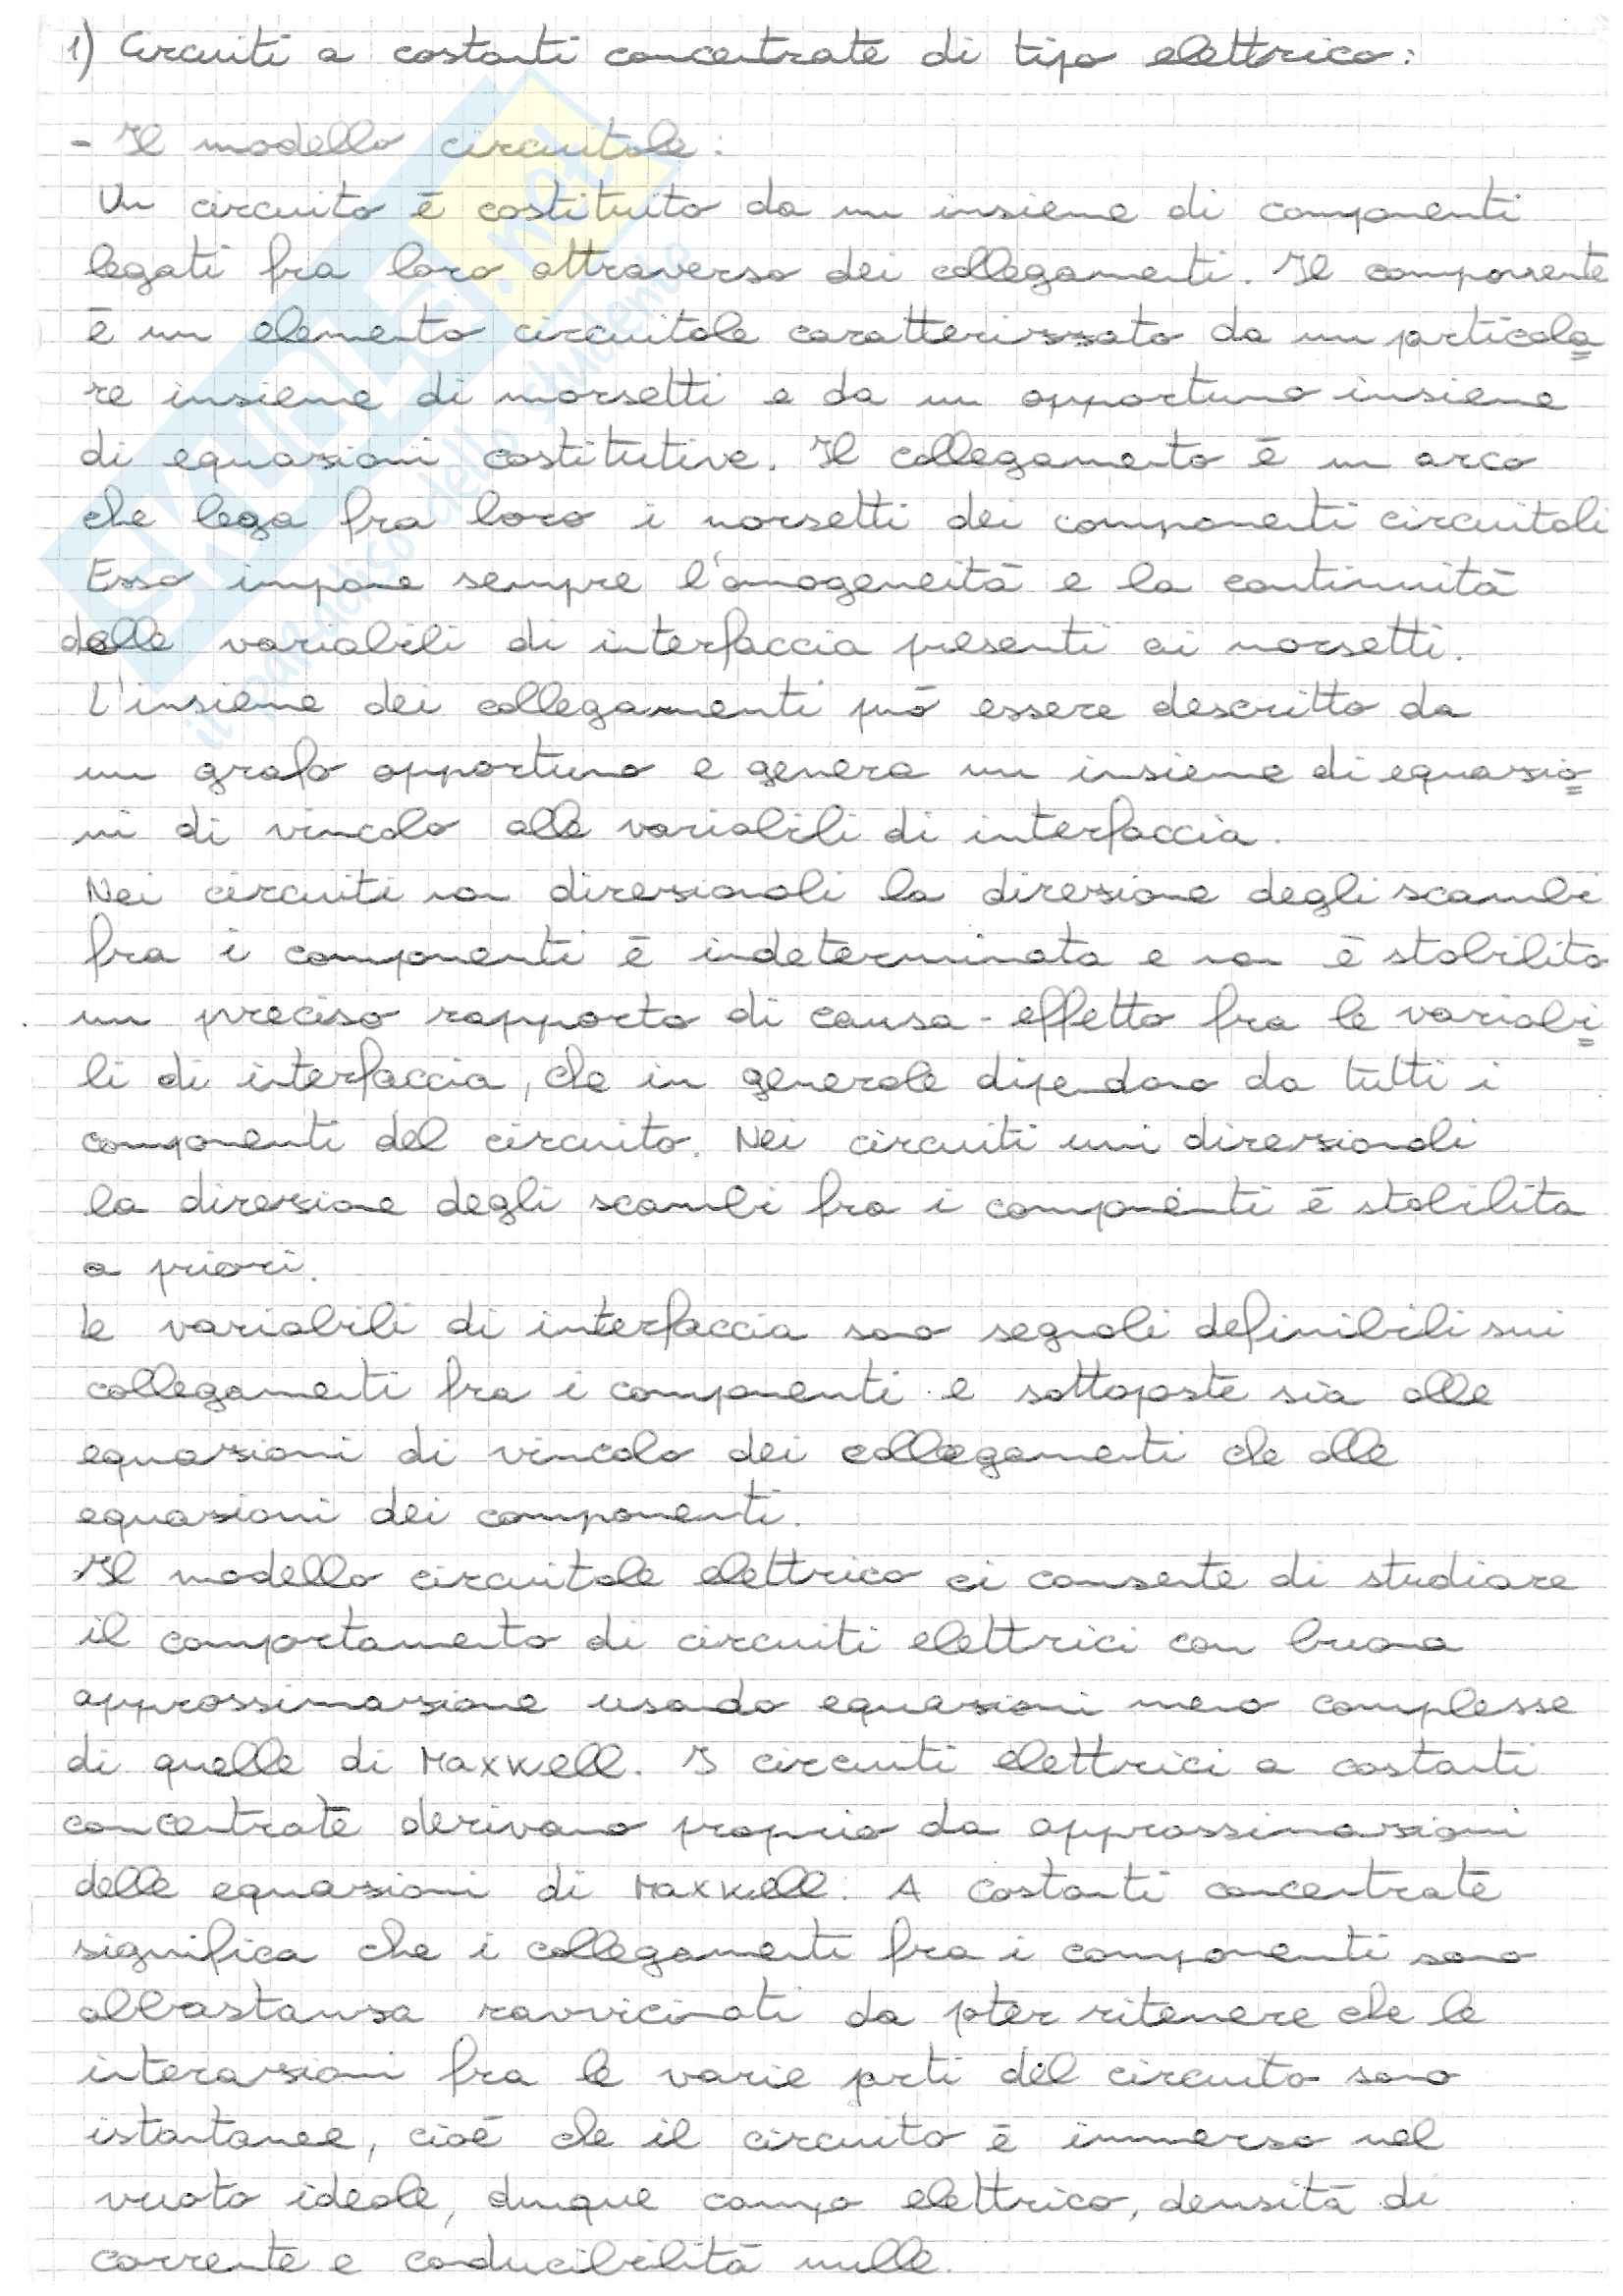 1) Circuiti a costanti concentrate di tipo elettrico:
- Il modello circuitale:
Un circuito è costituito da un insieme di componenti
legati fra loro attraverso dei collegamenti. Il componente
è un elemento circuitale caratterizzato da un particola
re insieme di morsetti e da un opportuno insieme
di equazioni costitutive. Il collegamento è un arco
che lega fra loro i morsetti dei componenti circuitali
Esso impone sempre l'omogeneità e la continuità
delle variabili di interfaccia presenti ai morsetti.
L'insieme dei collegamenti può essere descritto da
un grafo opportuno e genera un insieme di equazio
ni di vincolo alle variabili di interfaccia.
Nei circuiti non direzionali la direzione degli scambi
fra i componenti è indeterminata e non è stabilito
un preciso rapporto di causa-effetto fra le variabi
li di interfaccia, che in generale dipendono da tutti i
componenti del circuito. Nei circuiti unidirezionali
la direzione degli scambi fra i componenti è stabilita
a priori.
Le variabili di interfaccia sono segnali definibili sui
collegamenti fra i componenti e sottoposte sia alle
equazioni di vincolo dei collegamenti che alle
equazioni dei componenti.
Il modello circuitale elettrico ci consente di studiare
il comportamento di circuiti elettrici con buona
approssimazione usando equazioni meno complesse
di quelle di Maxwell. I circuiti elettrici a costanti
concentrate derivano proprio da approssimazioni
delle equazioni di Maxwell. A costanti concentrate
significa che i collegamenti fra i componenti sono
abbastanza ravvicinati da poter ritenere che le
interazioni fra le varie prti del circuito sono
istantanee, cioè che il circuito è immerso nel
vuoto ideale, dunque campo elettrico, densità di
corrente e conducibilità nulle.